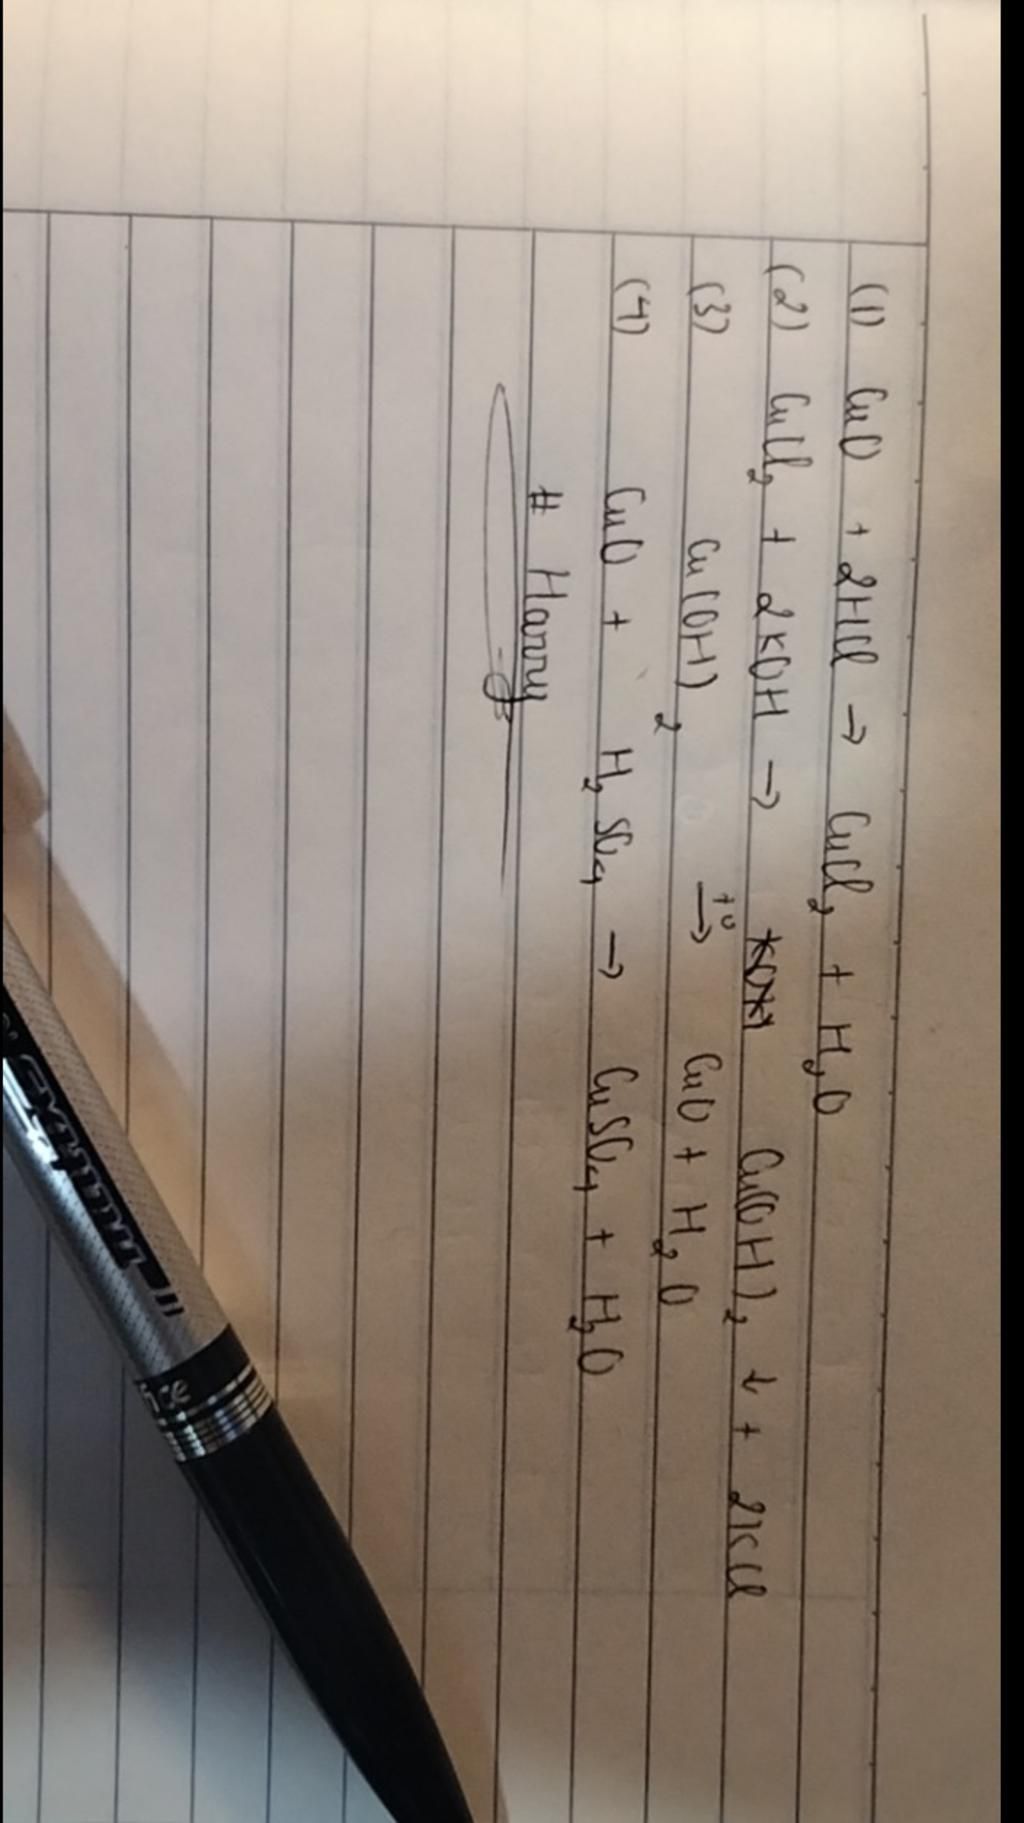 (1) CuO + 2HCl → CuCl₂ + H₂O
(2) CuCl₂ + 2KOH → Cu(OH)₂ ↓ + 2KCl
(3) Cu(OH)₂ →^{t°} CuO + H₂O
(4) CuO + H₂SO₄ → CuSO₄ + H₂O
# Harry